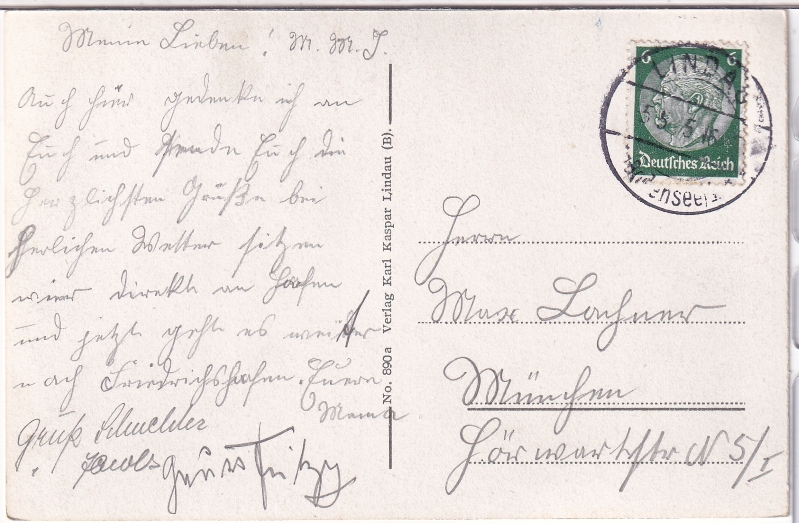 Meine Lieben! M. M. J.
Auch hier gedenke ich an
Euch und sende Euch die
herzlichsten Grüße bei
herlichen Wetter sitzen
wier direkt an Hafen
und jetzt geht es weiter
nach Friedrichshafen. Euere
Mama
Gruß
Jacob
Gruß Fritz
No. 890a Verlag Karl Kaspar Lindau (B).
6 6
Deutsches Reich
LINDAU
Herrn
Max Lachner
München
Hörwarthstr N 5/I